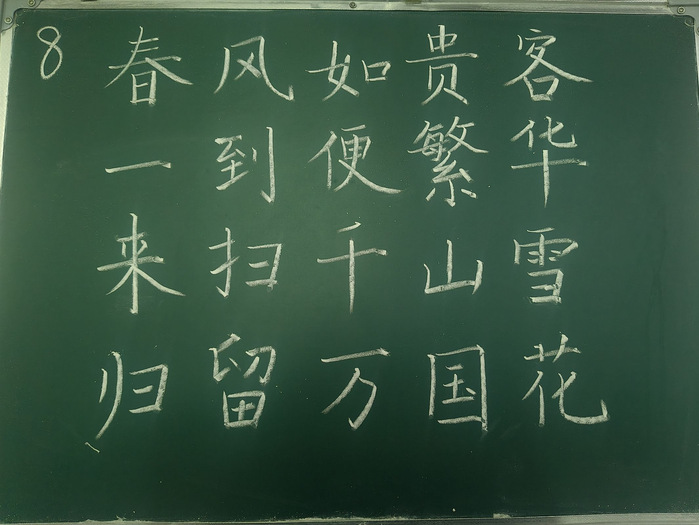 8 春风如贵客
一到便繁华
来扫千山雪
归留万国花